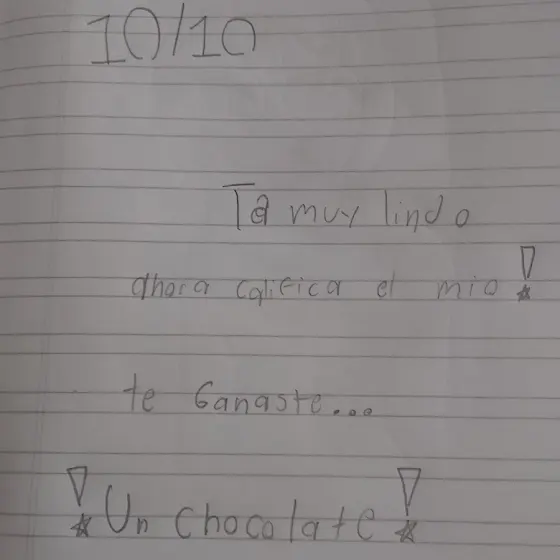 10/10
Ta muy lindo
ahora califica el mio!
te Ganaste...
! Un chocolate!